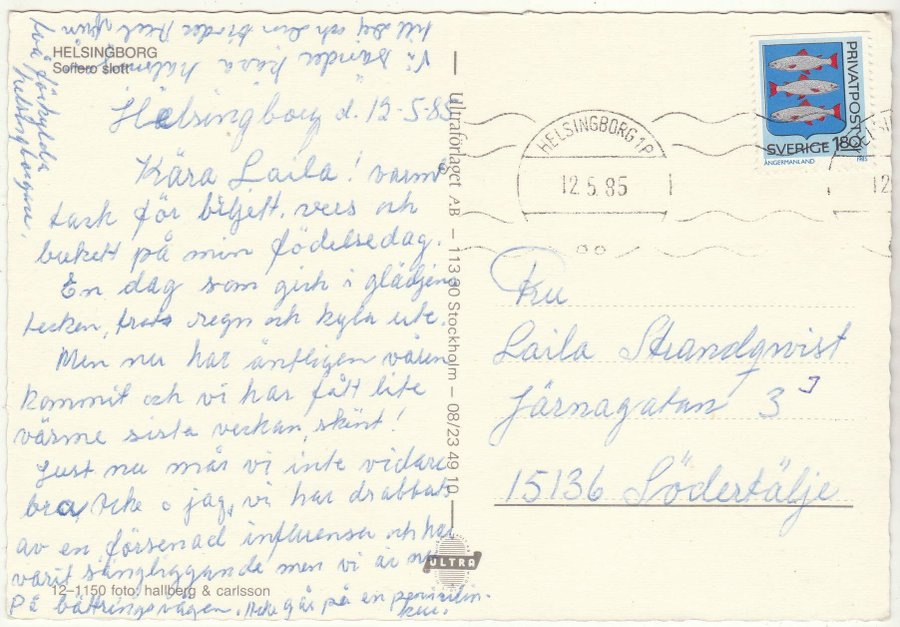 HELSINGBORG
Sofiero slott
Helsingborg d. 12-5-85
Kära Laila! varmt
tack för biljett, vers och
bukett på min födelsedag.
En dag som gick i glädjens
tecken, trots regn och kyla ute.
Men nu har äntligen våren
kommit och vi har fått lite
värme sista veckan, skönt!
Just nu mår vi inte vidare
bra, Acke o jag, vi har drabbats
av en försenad influensa och har
varit sängliggande men vi är nu
på bättringsvägen, Acke går på en penicilin-
kur.
Vi sänder kära hälsningar
till dej och den
från
två förkylda
helsingborgare.
12–1150 foto: hallberg & carlsson
Ultraförlaget AB – 113 80 Stockholm – 08/23 49 10
ULTRA
PRIVATPOST
SVERIGE 180
ÅNGERMANLAND 1985
HELSINGBORG 1 P
12.5.85
12
Fru
Laila Strandqvist
Järnagatan 3 J
15136 Södertälje